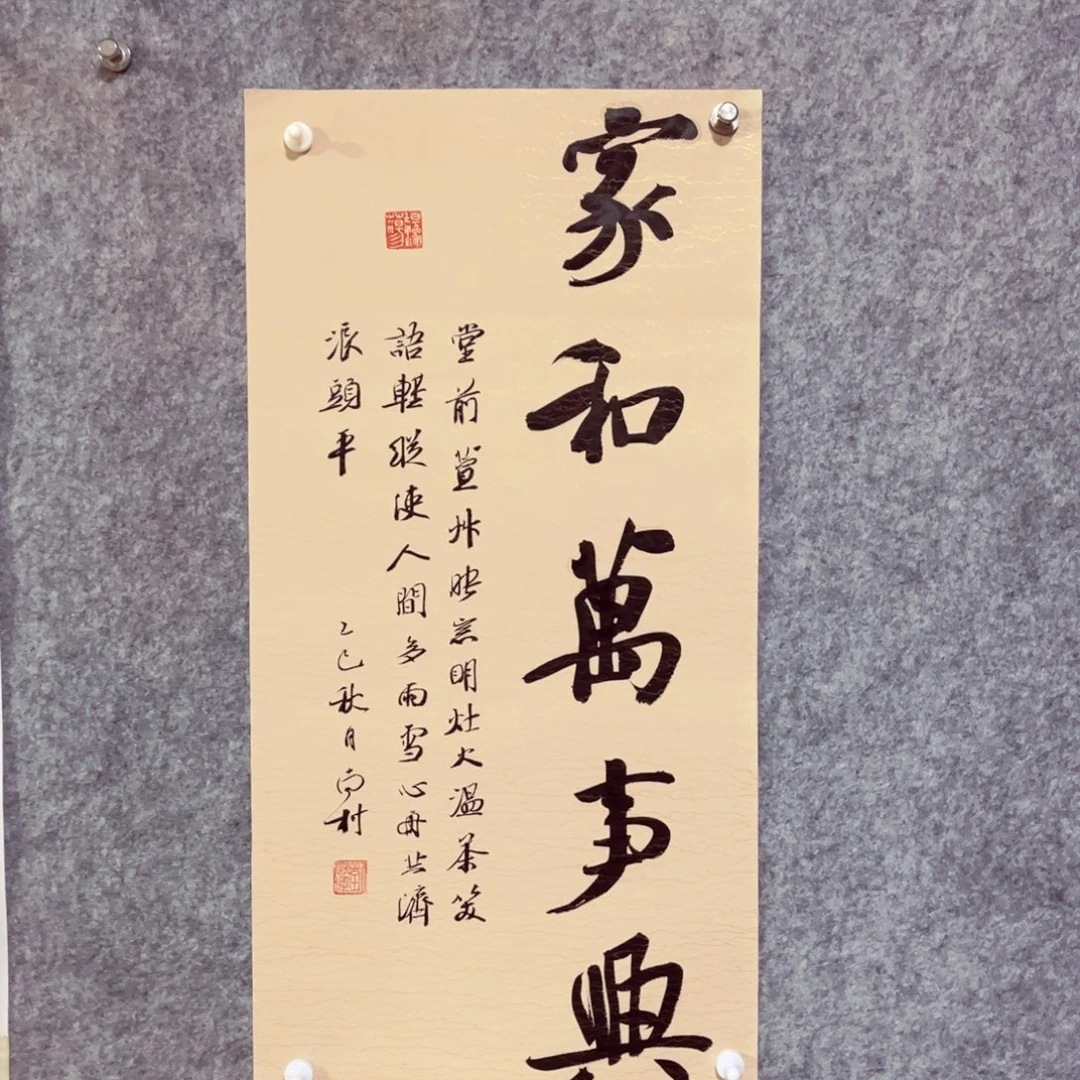 家和萬事興
堂前萱艸映窓明灶火溫茶笑
語輕縱使人間多雨雪心舟共濟
浪頭平
乙巳秋月村